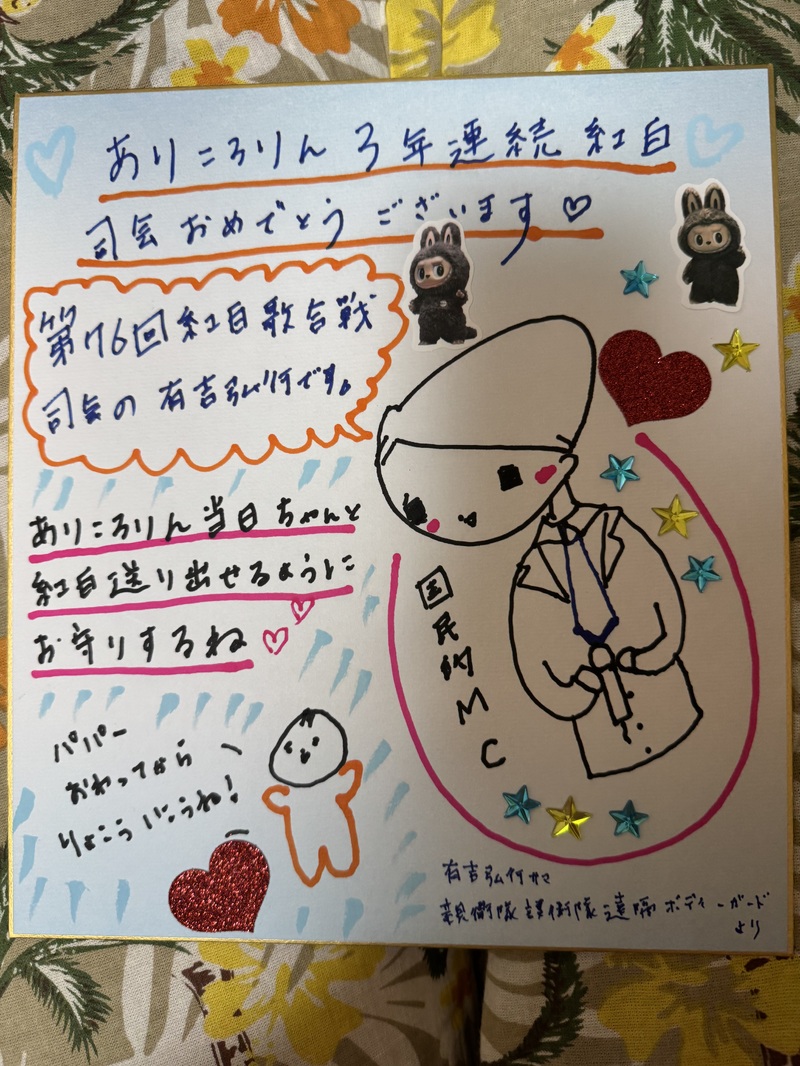 ありころりん3年連続紅白
司会おめでとうございます♡
第76回紅白歌合戦
司会の有吉弘行です。
ありころりん当日ちゃんと
紅白送り出せるように
お守りするね
パパー
おわってから
りょこういこうね!
国民的MC
有吉弘行サマ
親衛隊護衛隊遠隔ボディーガード
より